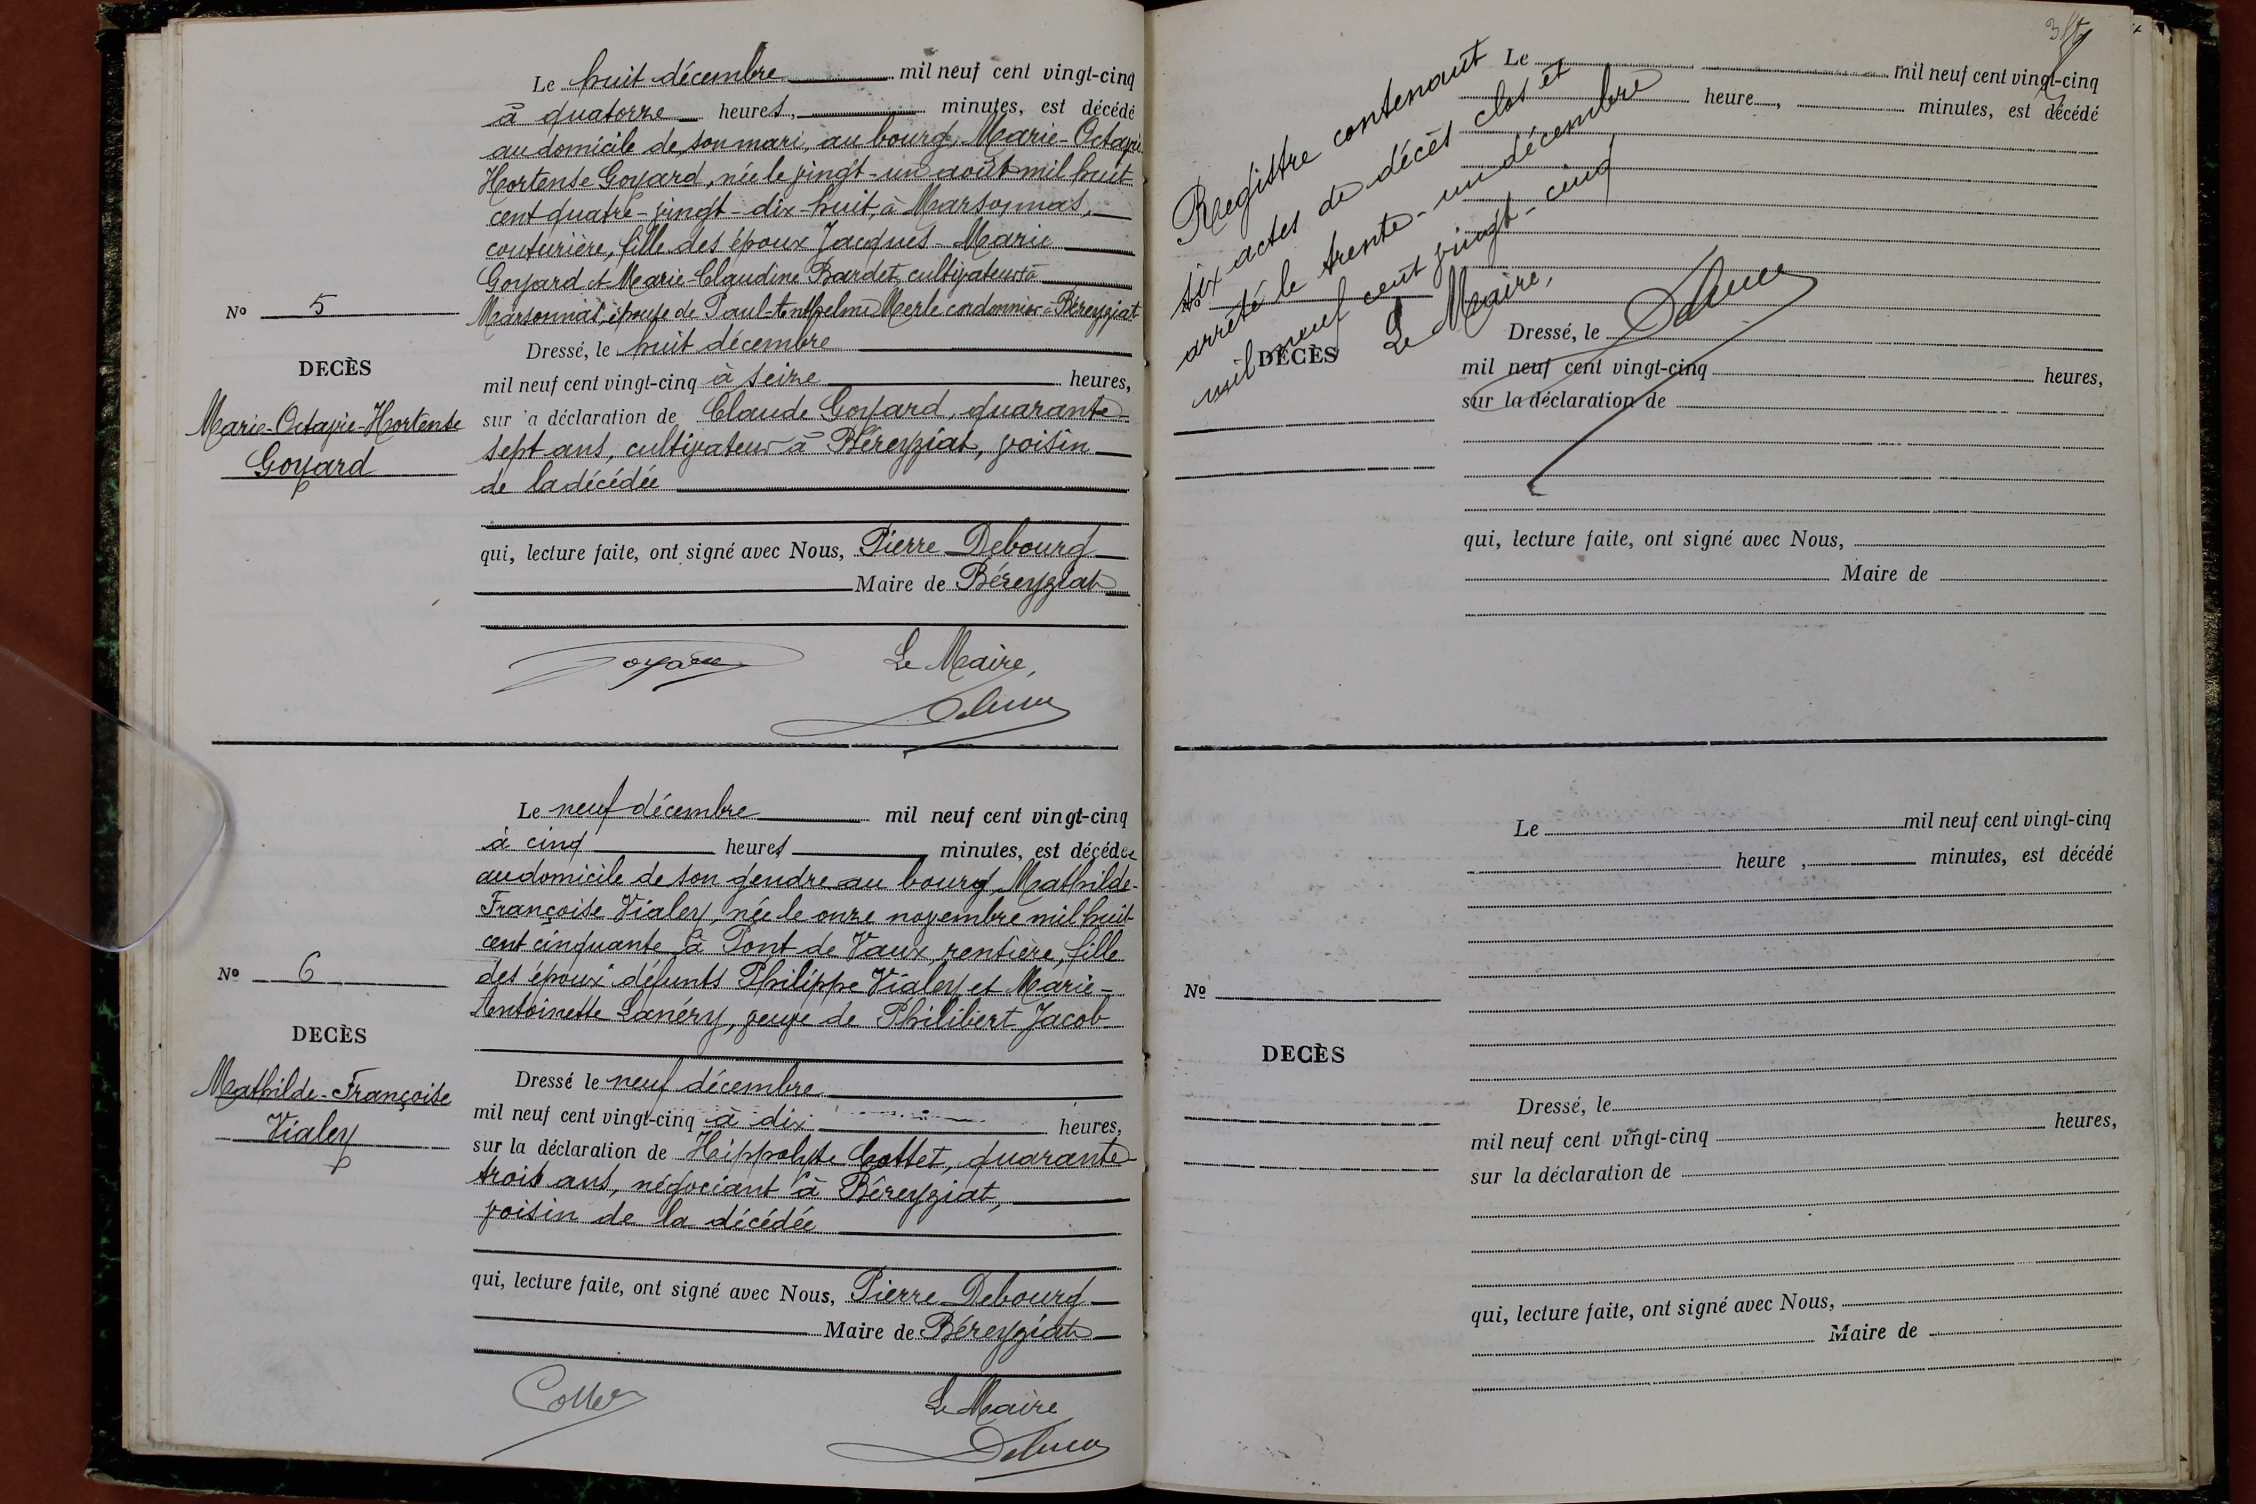 Le huit décembre mil neuf cent vingt-cinq
à quatorze heures, minutes, est décédé
au domicile de son mari, au bourg, Marie-Octavie
Hortense Goyard, née le vingt-un août mil huit
cent quatre-vingt-dix-huit, à Marsonnas,
couturière, fille des époux Jacques-Marie
Goyard et Marie-Claudine Bardet, cultivateurs à
Marsonnas, épouse de Paul-Anthelme Merle cordonnier à Béreyziat
No 5
Dressé, le huit décembre
DECÈS
mil neuf cent vingt-cinq à seize heures,
Marie-Octavie-Hortense
Goyard
sur a déclaration de Claude Goyard, quarante-
sept ans, cultivateur à Béreyziat, voisin
de la décédée
qui, lecture faite, ont signé avec Nous, Pierre Debourg
Maire de Béreyziat
Goyard Le Maire,
Le neuf décembre mil neuf cent vingt-cinq
à cinq heures minutes, est décédée
au domicile de son gendre au bourg, Mathilde-
Françoise Vialey, née le onze novembre mil huit
cent cinquante à Pont de Vaux, rentière, fille
des époux défunts Philippe Vialey et Marie-
Antoinette Lanéry, veuve de Philibert Jacob
No 6
DECÈS
Mathilde-Françoise
Vialey
Dressé le neuf décembre
mil neuf cent vingt-cinq à dix heures,
sur la déclaration de Hippolyte Cottet, quarante-
trois ans, négociant à Béreyziat,
voisin de la décédée
qui, lecture faite, ont signé avec Nous, Pierre Debourg
Maire de Béreyziat
Cottet Le Maire
Registre contenant
six actes de décès clos et
arrêté le trente-un décembre
mil neuf cent vingt-cinq
Le Maire,
Le mil neuf cent vingt-cinq
heure , minutes, est décédé
No
DECÈS
Dressé, le
mil neuf cent vingt-cinq heures,
sur la déclaration de
qui, lecture faite, ont signé avec Nous,
Maire de
Le mil neuf cent vingt-cinq
heure , minutes, est décédé
No
DECÈS
Dressé, le
mil neuf cent vingt-cinq heures,
sur la déclaration de
qui, lecture faite, ont signé avec Nous,
Maire de